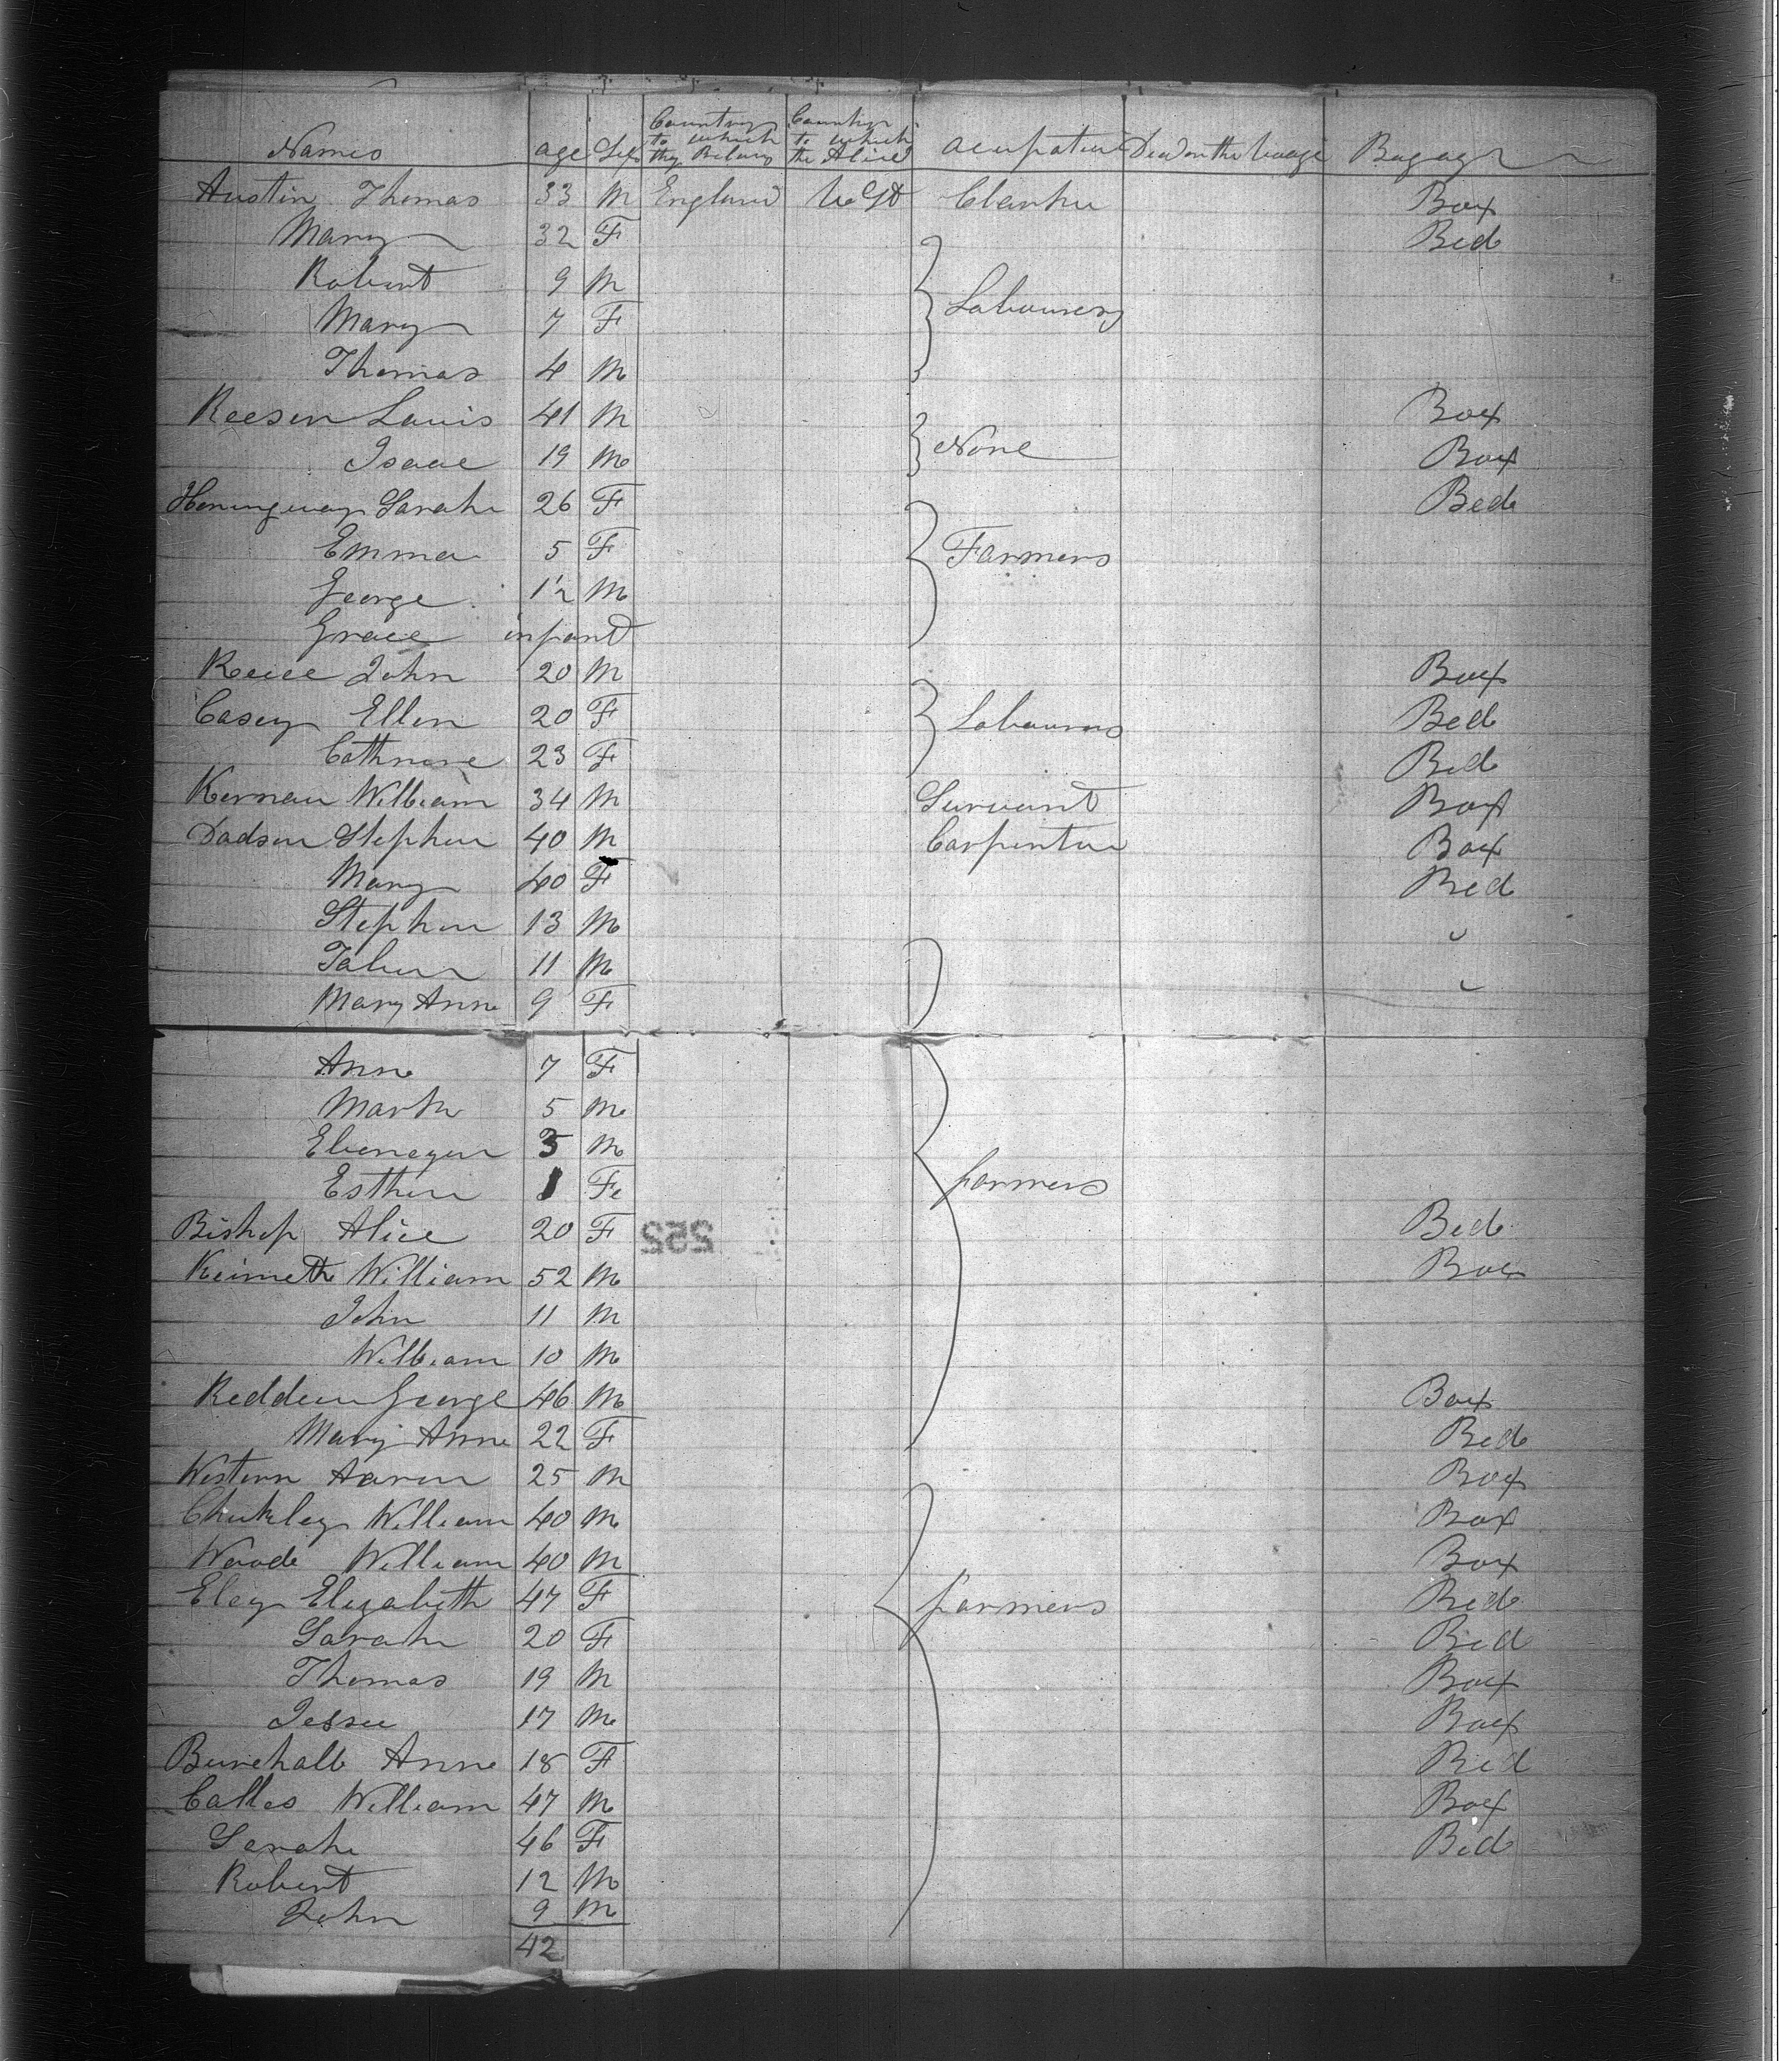 Names age Sex Country to which they Belong Country to which the Alied Acupation Died on the Voage Bagag
Austin Thomas 33 M England U St Clarke Box
Mary 32 F Bed
Robert 9 M
Mary 7 F Labourers
Thomas 4 M
Reeson Lauis 41 M Box
Isaac 19 M None Box
Hemingway Sarah 26 F Bed
Emma 5 F Farmers
George 1½ M
Grace infant
Reice John 20 M Box
Casey Ellen 20 F Labourers Bed
Cathrane 23 F Bed
Kernau William 34 M Survant Box
Dadson Stephen 40 M Carpenter Box
Mary 40 F Bed
Stephen 13 M "
11 M
Mary Anne 9 F "
Anne 7 F
Mark 5 M
Ebenezer 3 M
Esther 1 Fe farmers
Bishop Alice 20 F 252 Bed
William 52 M Box
John 11 M
William 10 M
Redden George 46 M Box
Mary Anne 22 F Bed
Western Aaron 25 M Box
Chukley William 40 M Box
Woode William 40 M Box
Eley Elizabeth 47 F farmers Bed
Sarah 20 F Bed
Thomas 19 M Box
Jessee 17 M Box
Burchall Anne 18 F Bed
Calles William 47 M Box
Sarah 46 F Bed
Robert 12 M
John 9 M
42